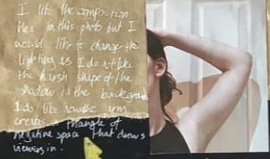 I like the composition
here in this photo but I
would like to change the
lighting as I do not like
the harsh shape of the
shadow in the background
I do like how the arm
creates a triangle of
negative space that draws
viewers in.